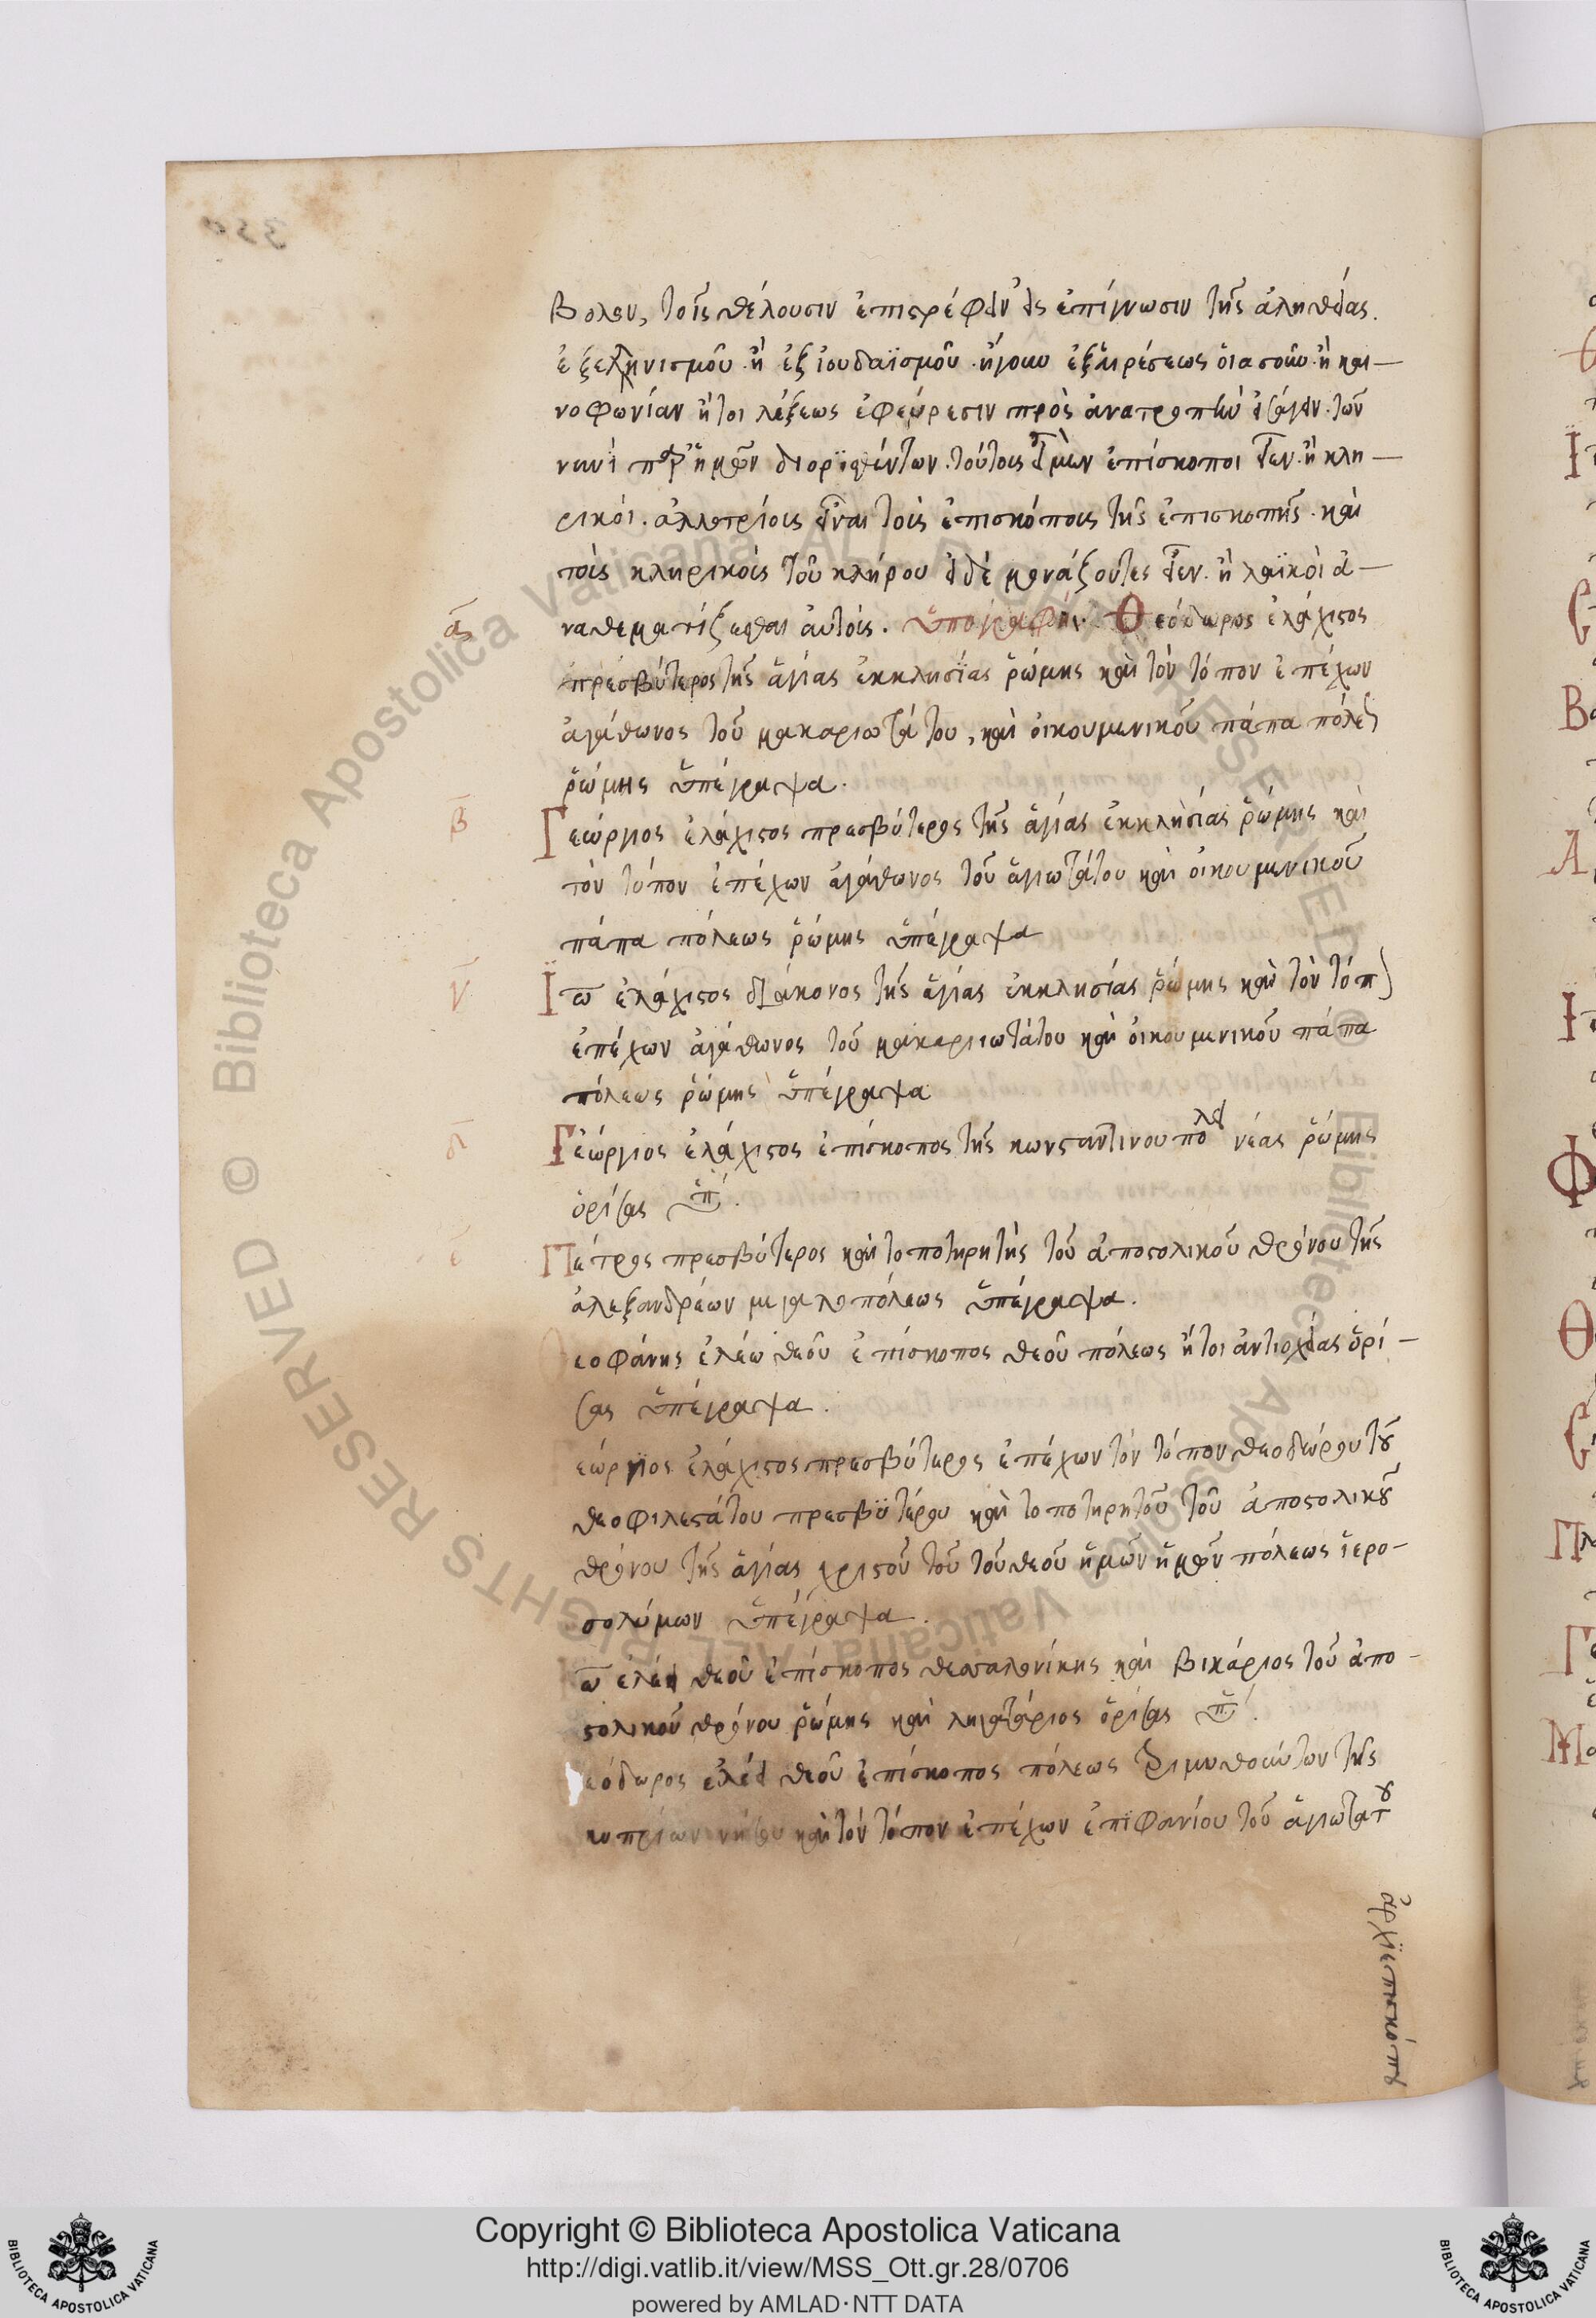 βολον, τοῖς θέλουσιν ἐπιστρέφειν εἰς ἐπίγνωσιν τῆς ἀληθείας.
ἐξελληνισμοῦ ἢ ἐξ ἰουδαϊσμοῦ ἤγουν ἐξ αἱρέσεως οἵας οὖν ἢ και
νοφωνίαν ἤτοι λέξεως ἐφεύρεσιν πρὸς ἀνατροπὴν εἰσάγειν τῶν
νυνὶ παρ' ἡμῶν διορισθέντων. τούτους εἰ μὲν ἐπίσκοποι εἶεν ἢ κλη
ρικοί. ἀλλοτρίους εἶναι τοὺς ἐπισκόπους τῆς ἐπισκοπῆς καὶ
τοὺς κληρικοὺς τοῦ κλήρου εἰ δὲ μονάζοντες εἶεν. ἢ λαϊκοὶ ἀ
ᾱ ναθεματίζεσθαι αὐτούς. ὑπογραφή. Θεόδωρος ἐλάχιστος
πρεσβύτερος τῆς ἁγίας ἐκκλησίας ῥώμης καὶ τὸν τόπον ἐπέχων
ἀγάθωνος τοῦ μακαριωτάτου, καὶ οἰκουμενικοῦ πάπα πόλεως
ῥώμης ὑπέγραψα.
β̄ Γεώργιος ἐλάχιστος πρεσβύτερος τῆς ἁγίας ἐκκλησίας ῥώμης καὶ
τὸν τόπον ἐπέχων ἀγάθωνος τοῦ ἁγιωτάτου καὶ οἰκουμενικοῦ
πάπα πόλεως ῥώμης ὑπέγραψα
γ̄ Ἰω ἐλάχιστος διάκονος τῆς ἁγίας ἐκκλησίας ῥώμης καὶ τὸν τόπ
ἐπέχων ἀγάθωνος τοῦ μακαριωτάτου καὶ οἰκουμενικοῦ πάπα
πόλεως ῥώμης ὑπέγραψα
δ̄ Γεώργιος ἐλάχιστος ἐπίσκοπος τῆς κωνσταντινουπόλεως νέας ῥώμης
ὁρίσας ὑπ.
ε̄ Πέτρος πρεσβύτερος καὶ τοποτηρητὴς τοῦ ἀποστολικοῦ θρόνου τῆς
ἀλεξανδρέων μεγαλοπόλεως ὑπέγραψα.
Θεοφάνης ἐλέω θεοῦ ἐπίσκοπος θεοῦ πόλεως ἤτοι ἀντιοχείας ὁρί
σας ὑπέγραψα.
εώργιος ἐλάχιστος πρεσβύτερος ἐπέχων τὸν τόπον θεοδώρου τοῦ
θεοφιλεστάτου πρεσβυτέρου καὶ τοποτηρητοῦ τοῦ ἀποστολικοῦ
θρόνου τῆς ἁγίας χριστοῦ τοῦ τοῦ θεοῦ ἡμῶν ἡμῶν πόλεως ἱερο
σολύμων ὑπέγραψα.
ω ἐλέει θεοῦ ἐπίσκοπος θεσσαλονίκης καὶ βικάριος τοῦ ἀπο
στολικοῦ θρόνου ῥώμης καὶ ληγατάριος ὁρίσας ὑπ.
εόδωρος ἐλέει θεοῦ ἐπίσκοπος πόλεως τριμυθούντων τῆς
κυπρίων νήσου καὶ τὸν τόπον ἐπέχων ἐπιφανίου τοῦ ἁγιωτάτου
ἀρχιεπισκόπου
Copyright © Biblioteca Apostolica Vaticana
http://digi.vatlib.it/view/MSS_Ott.gr.28/0706
powered by AMLAD·NTT DATA